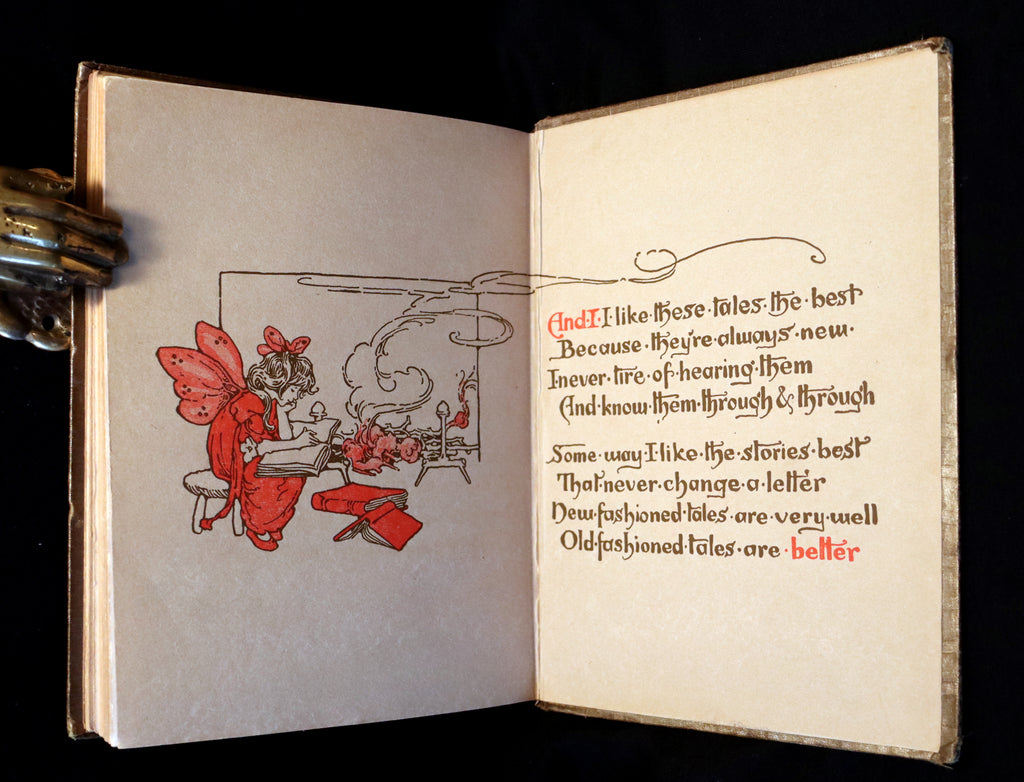 And·I·I·like·these·tales·the·best
Because·they're·always·new·
I·never·tire·of·hearing·them
And·know·them·through·&·through
Some·way·I·like·the·stories·best
That·never·change·a·letter
New·fashioned·tales·are·very·well
Old·fashioned·tales·are·better